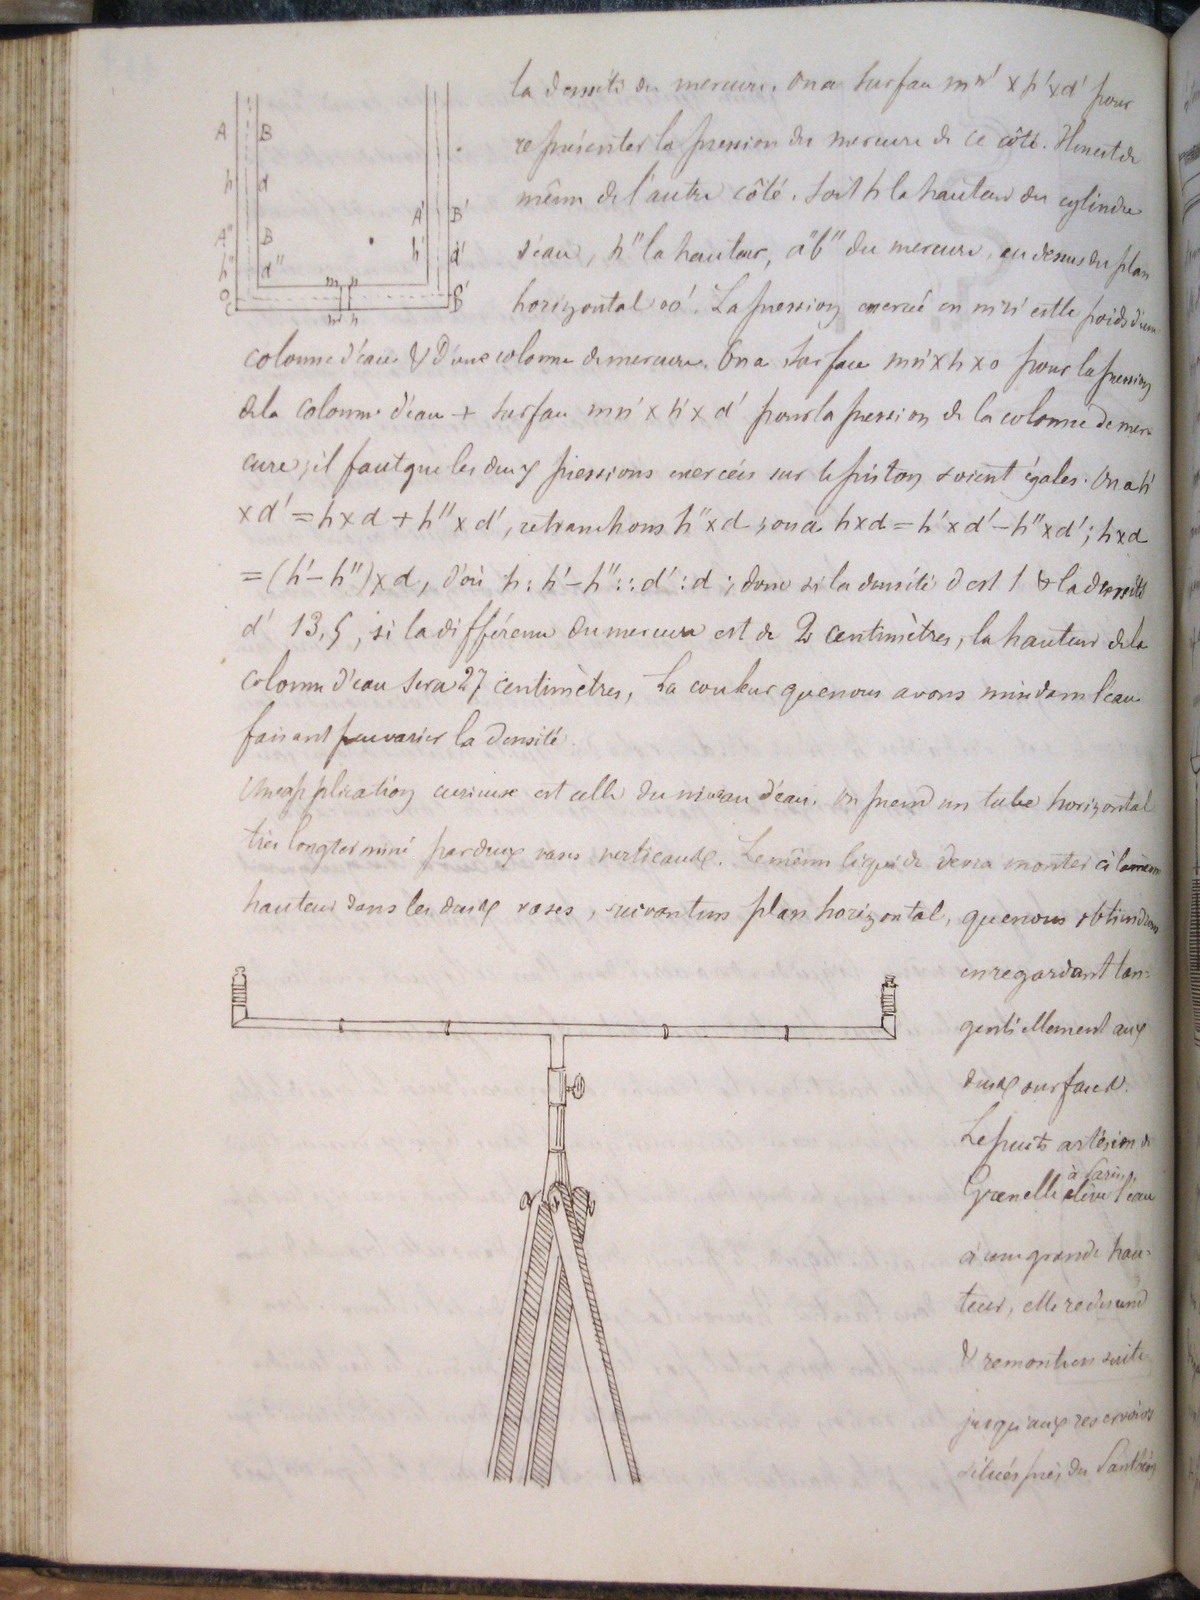 la densité du mercure. On a surface mn' × h' × d' pour
représenter la pression du mercure de ce côté. Il en est de
même de l'autre côté. Soit h la hauteur du cylindre
d'eau, h'' la hauteur, a''b'' du mercure, au dessus du plan
horizontal oo'. La pression exercée en m'n' est le poids d'une
colonne d'eau & d'une colonne de mercure. On a surface mn' × h × d pour la pression
de la colonne d'eau + surface mn' × h' × d' pour la pression de la colonne de mer
cure; il faut que les deux pressions exercées sur le piston soient égales. On a h'
× d' = h × d + h'' × d', retranchons h'' × d; on a h × d = h' × d' – h'' × d'; h × d
= (h' – h'') × d, d'où h : h' – h'' :: d' : d; donc si la densité d est 1 & la densité
d' 13,5, si la différence du mercure est de 2 centimètres, la hauteur de la
colonne d'eau sera 27 centimètres, La couleur que nous avons mis dans l'eau
faisant peu varier la densité.
Une application curieuse est celle du niveau d'eau. On prend un tube horizontal
très long terminé par deux vases verticaux. Le même liquide devra monter à la même
hauteur dans les deux vases, suivant un plan horizontal, que nous obtiendrons
en regardant tan-
gentiellement aux
deux surfaces.
Le puits artésien de
Grenelle à Paris, élève l'eau
à une grande hau-
teur, elle redescend
& remonte ensuite
jusqu'aux reservoirs
situés près du Panthéon
A B
h d
A' B'
h' d'
A'' B
h'' d''
m n
m n